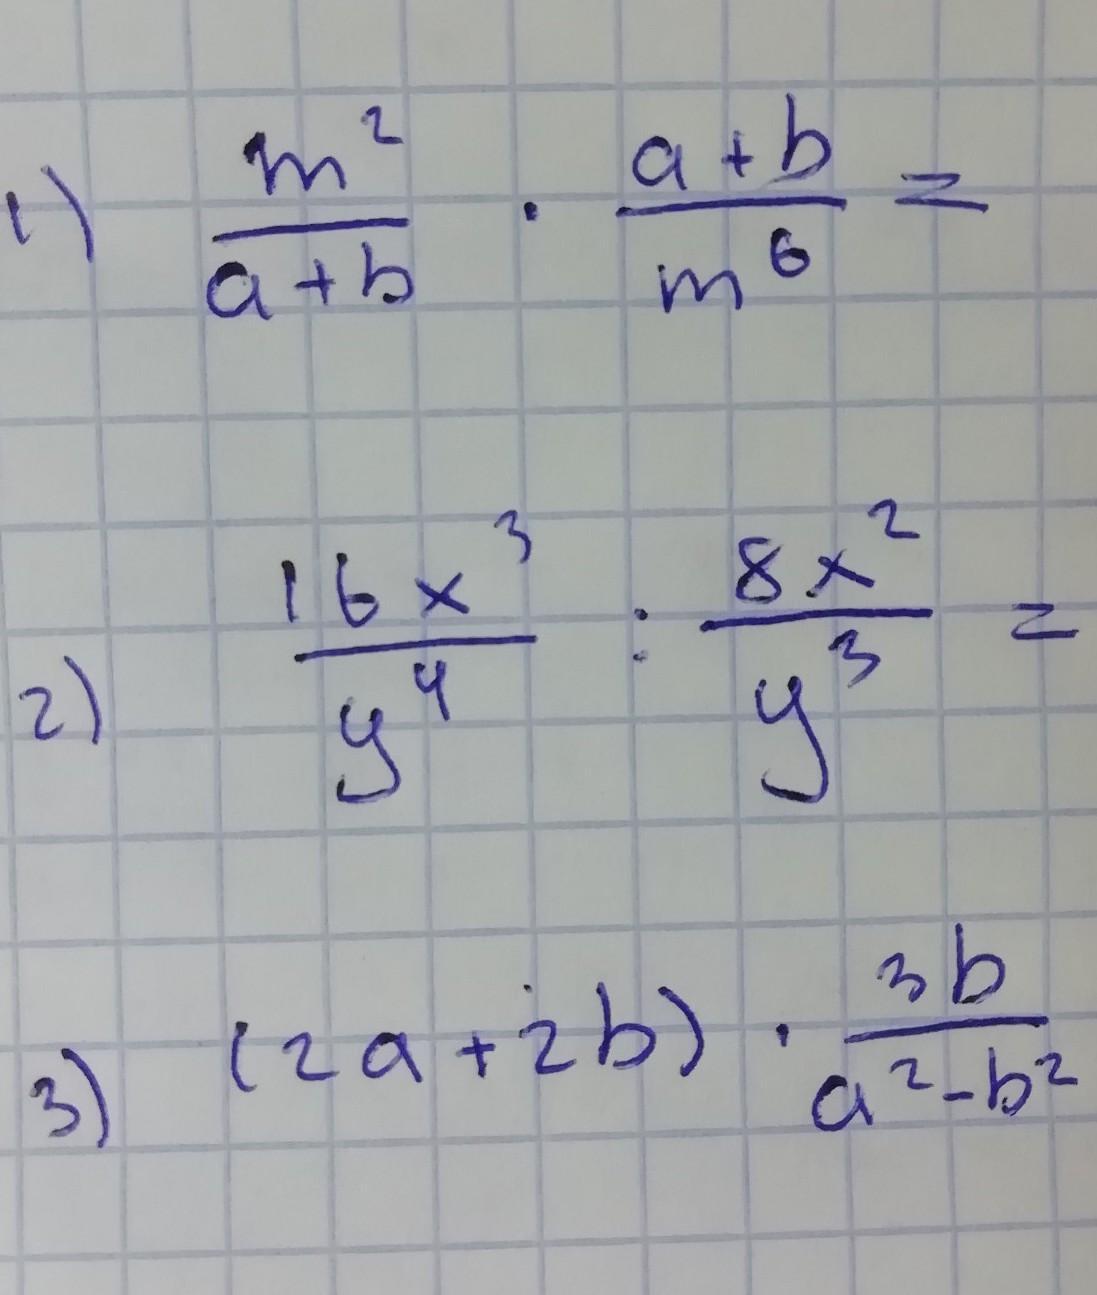 1) m²/(a+b) · (a+b)/m⁶ =
2) 16x³/y⁴ : 8x²/y³ =
3) (2a+2b) · 3b/(a²-b²)